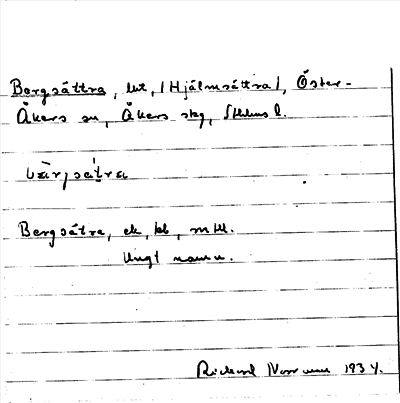 Bergsättra, lht, (Hjälmsättra), Öster-
Åkers sn, Åkers skg, Sthlms l.
bä̀rjsä̀tra
Bergsätra, ek, kb, mtl.
Ungt namn.
Rickard 1934.